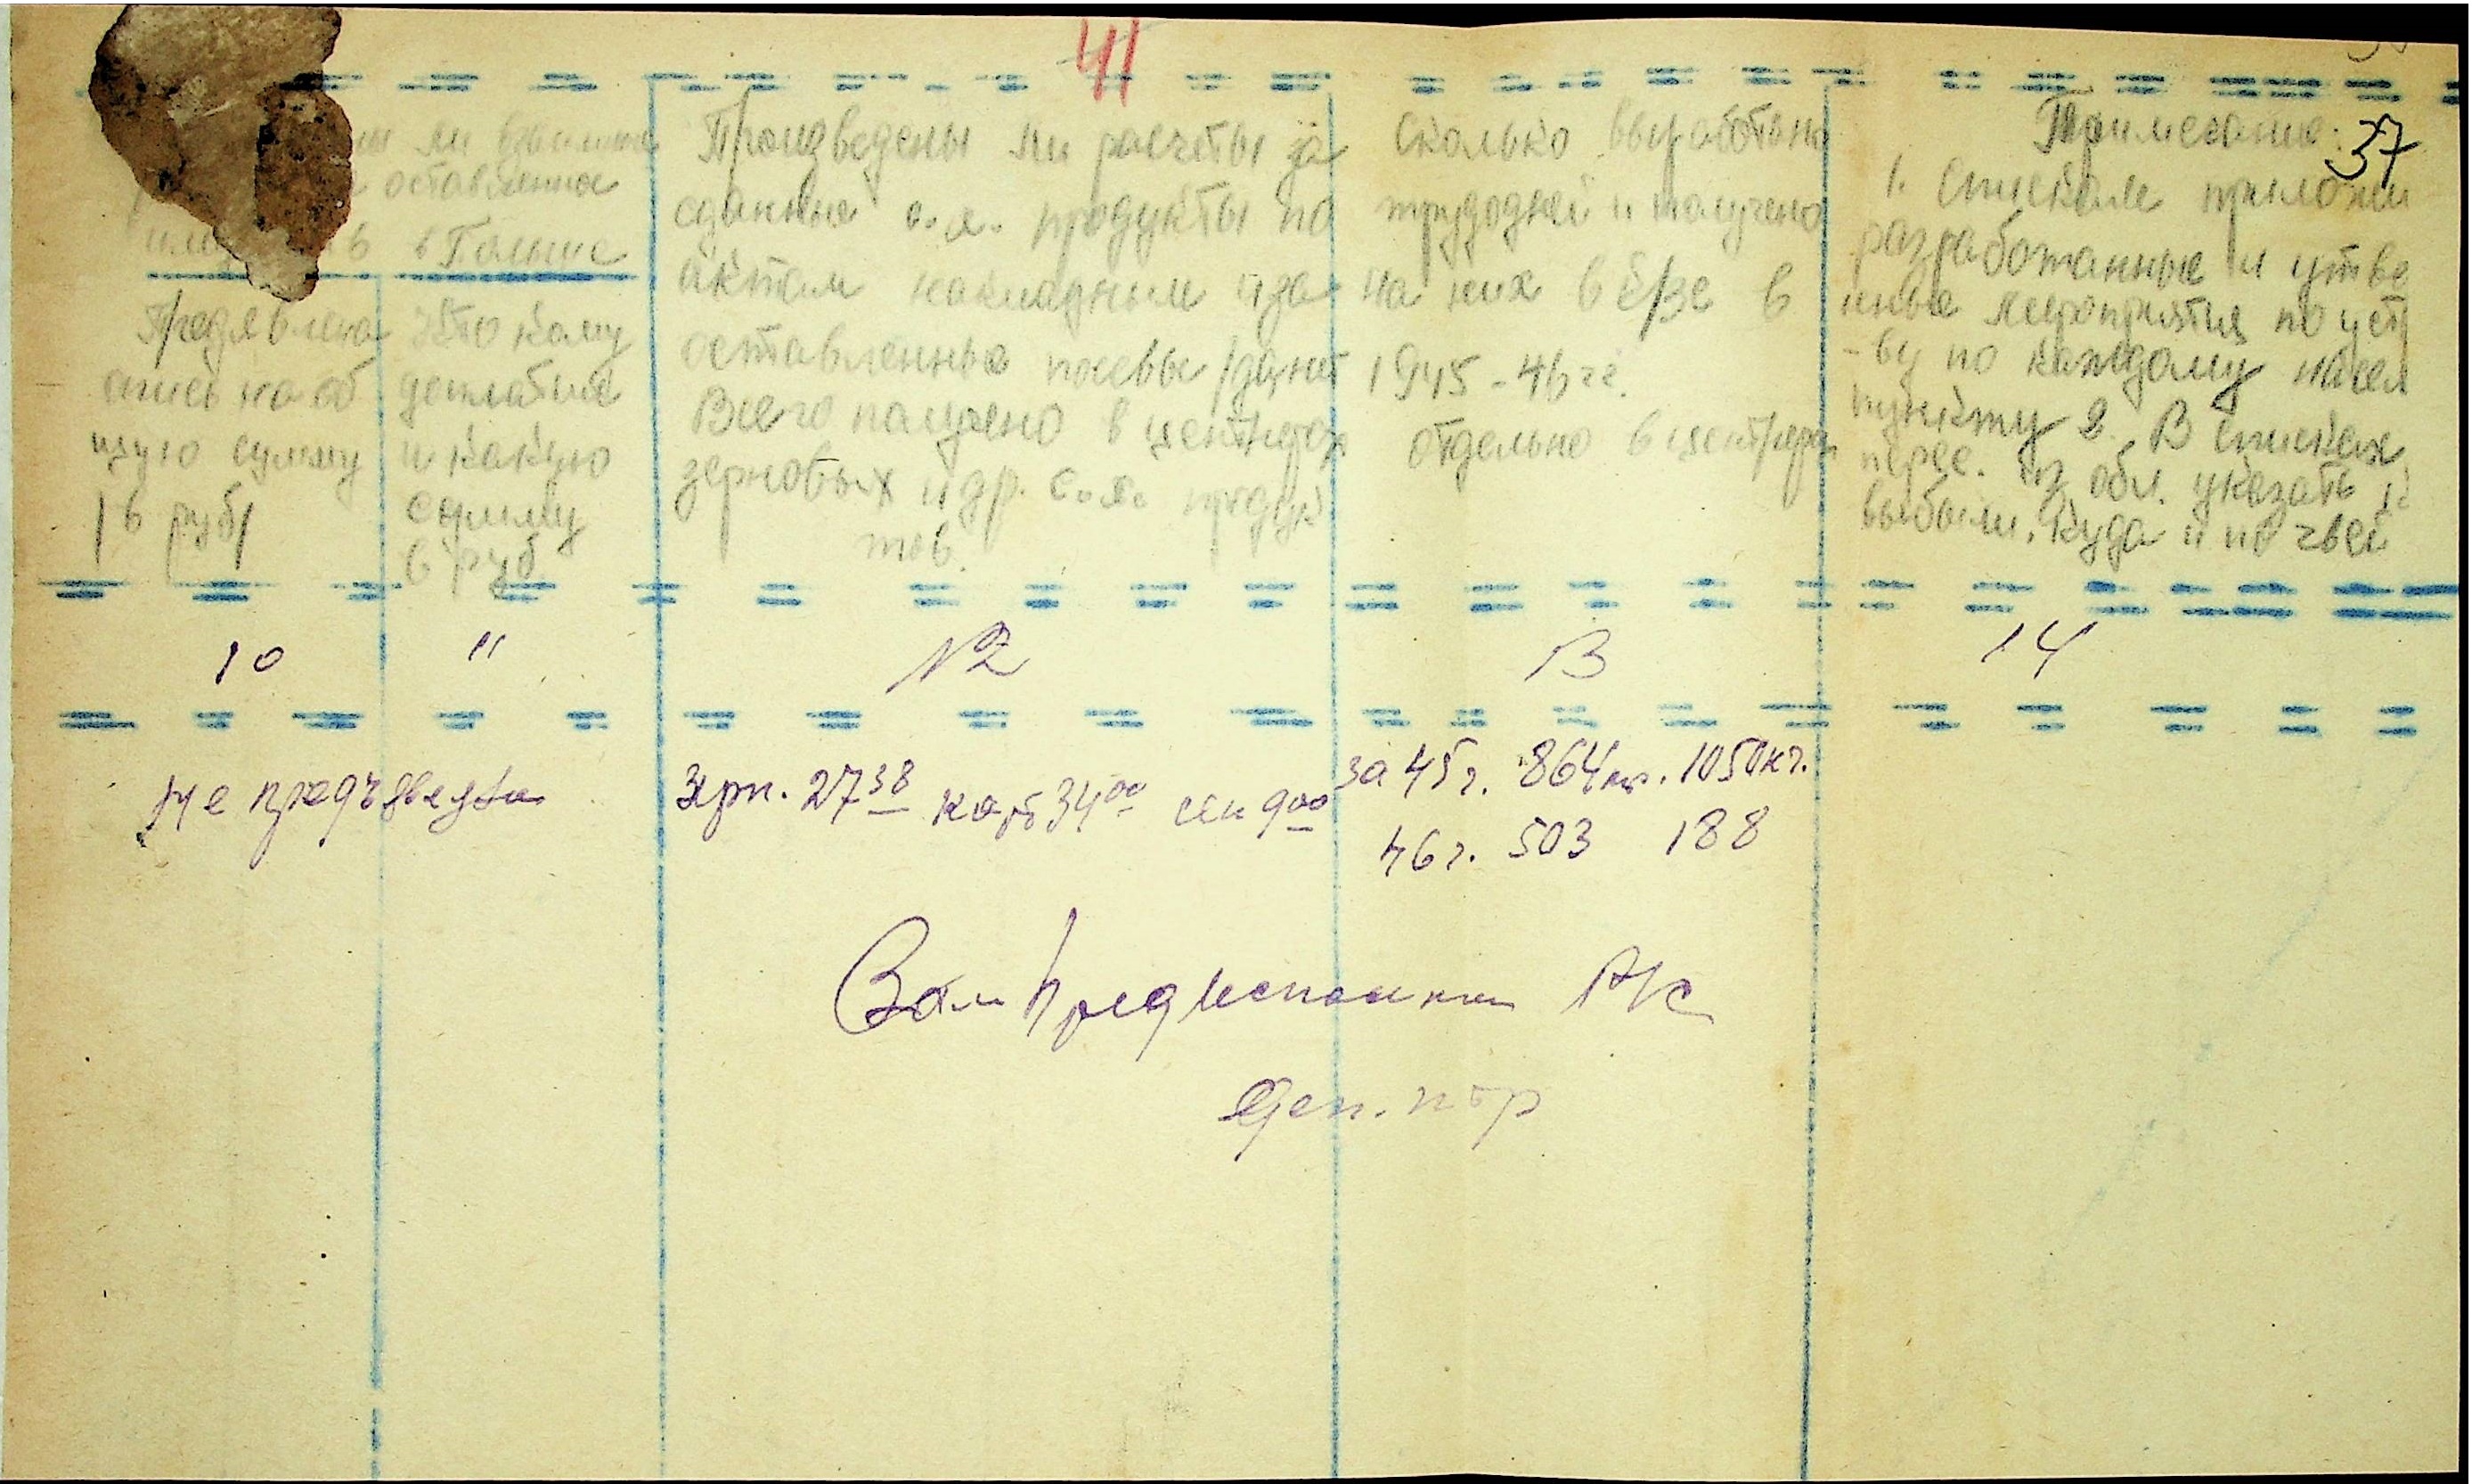 41
37
ли взыскания
оставленное
в Польше
Предявлена
опись на об
щую сумму
/в руб/
кому
и какую
сумму
в руб
Произведены ли расчеты за
сданные с.х. продукты по
актам накладным и за
оставленные посевы
Всего получено в центнерах
зерновых и др. с.х. продук
тов.
Сколько выработано
трудодней и получено
на них в в
1945-46 гг.
отдельно в центнерах
Примечание:
1. Спискам приложи
разработанные и утве
нные мероприятия по уст
-ву по каждому насел
пункту 2. В списках
перес. из обл. указать
выбыли, куда и по чьей
10 11 12 13 14
Не предъявлена
зерн. 27 38 карт 34 00 сен 9 00
за 45 г. 864 1050 кг.
46 г. 503 188
Зам Пред